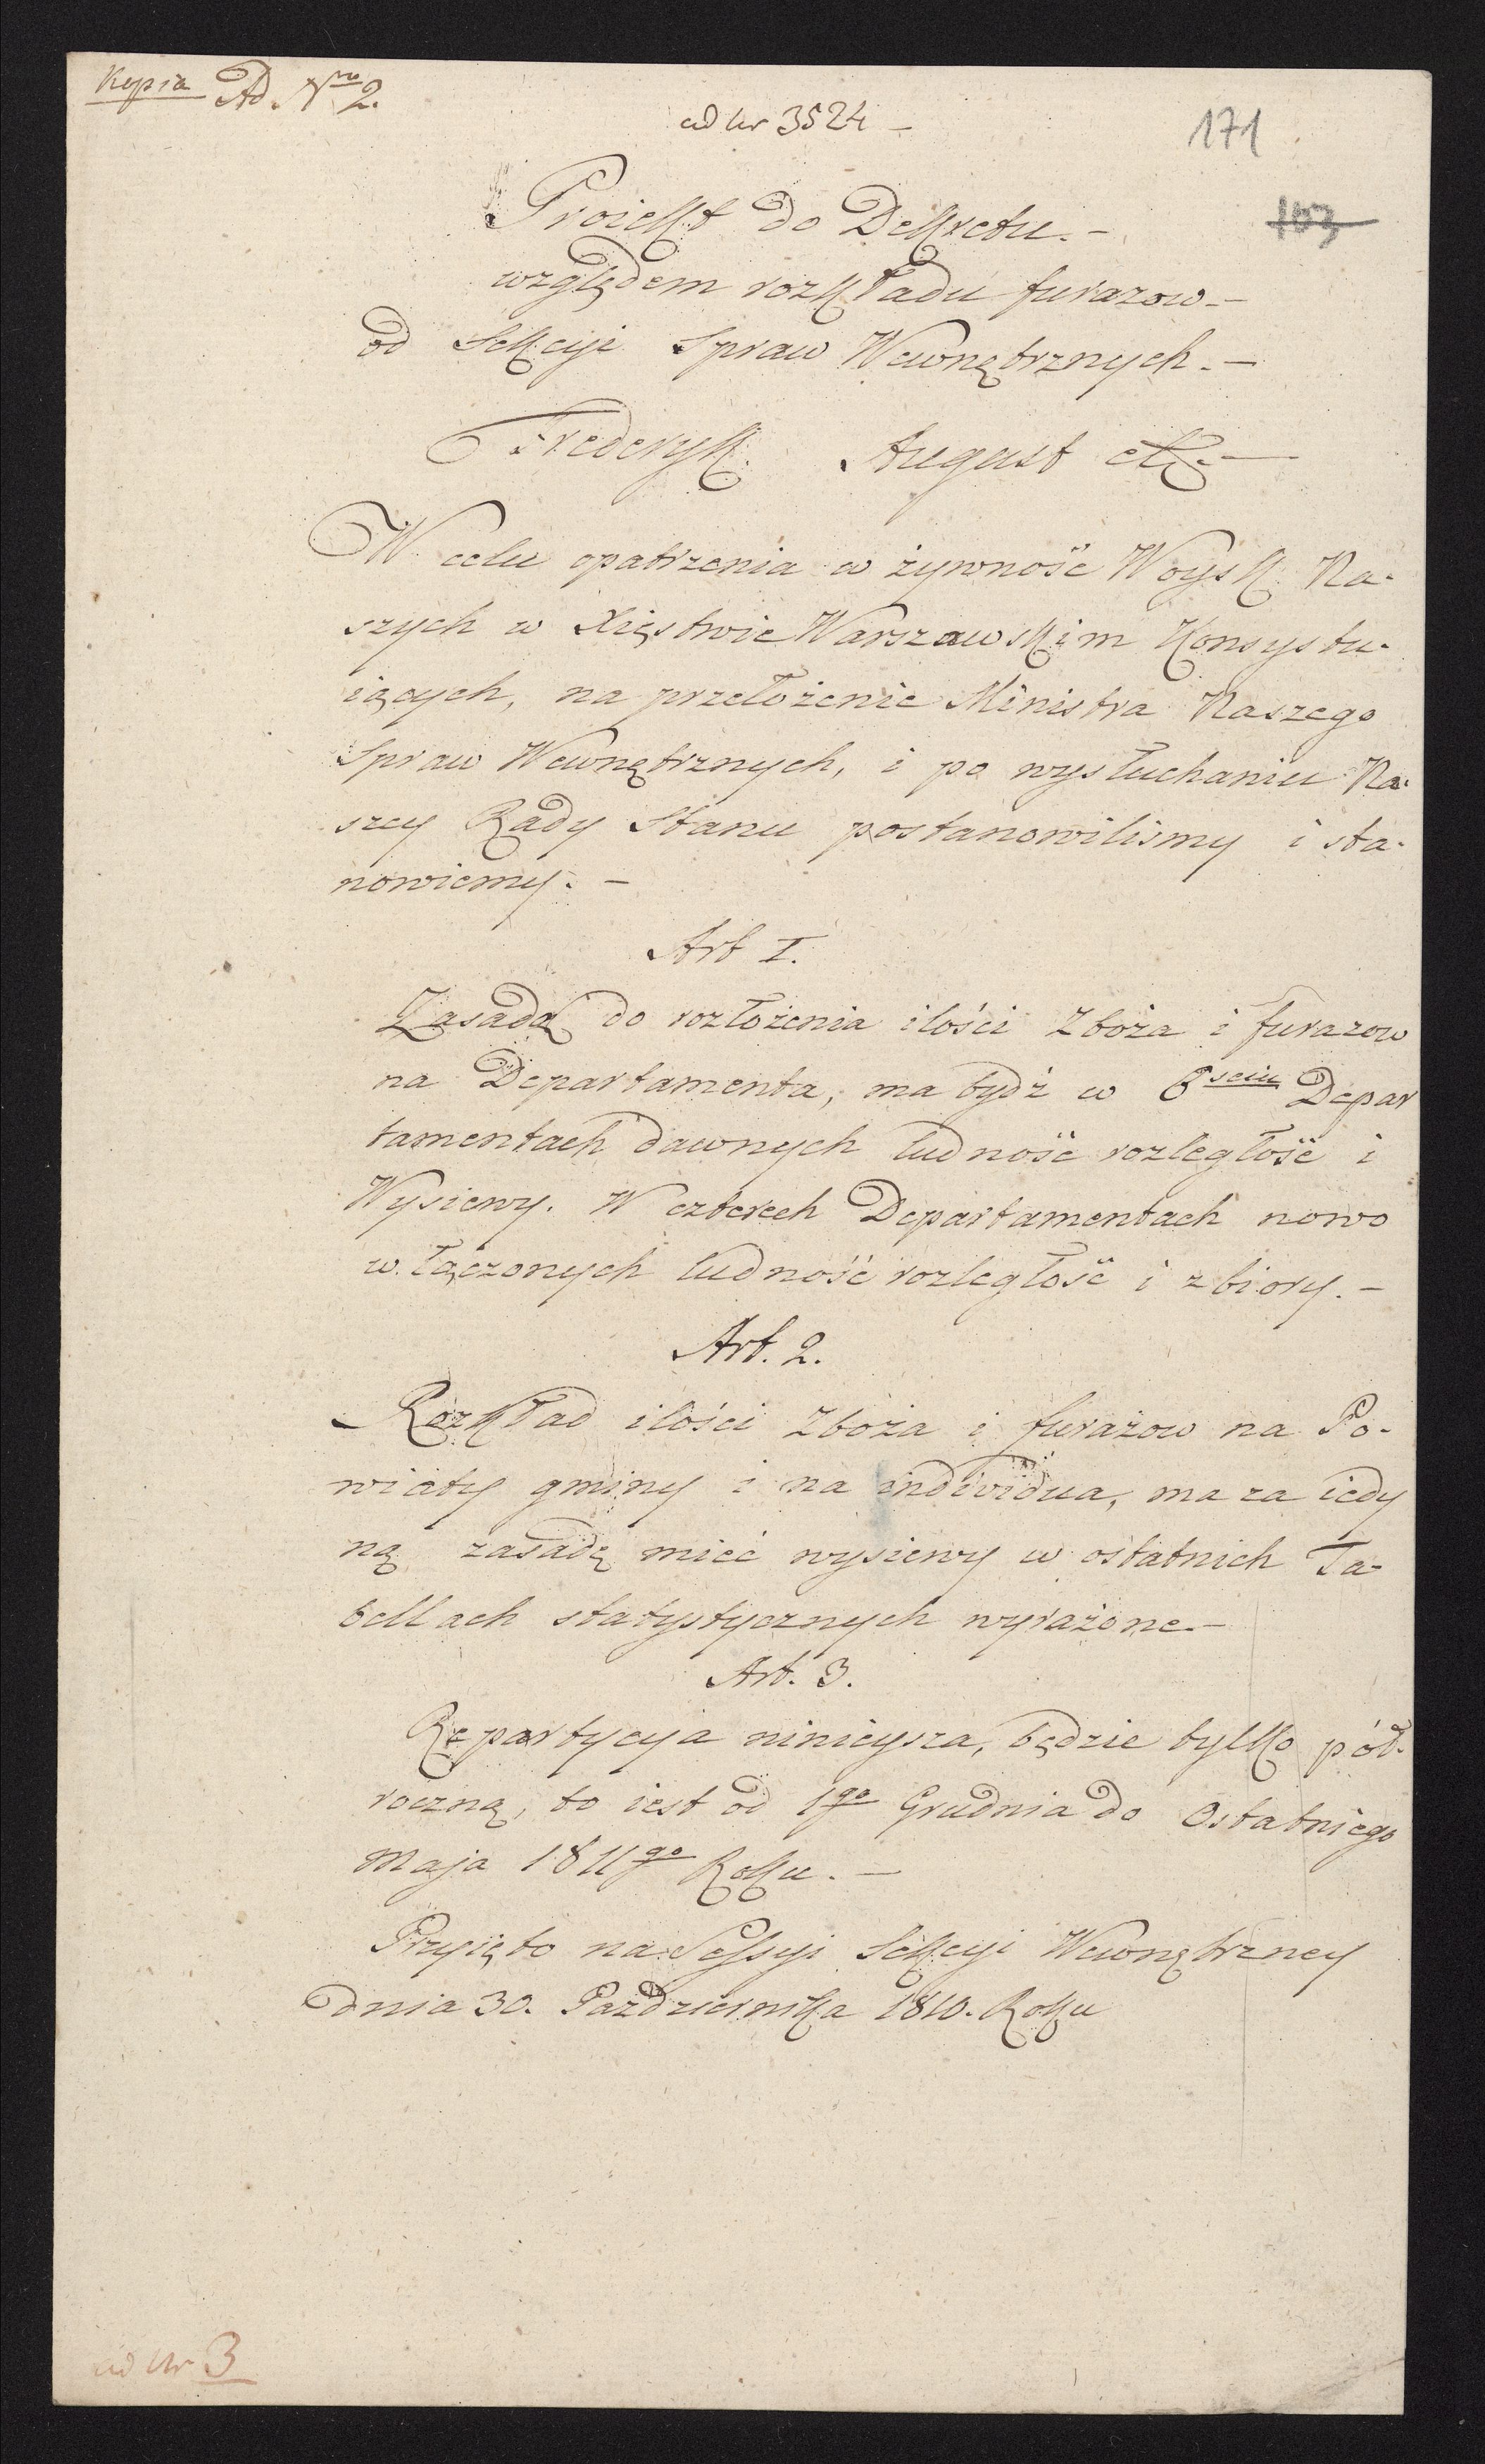 Kopia Ad. Nro 2.
ad Nr 3524 –
171
103
Proiekt do Dekretu. –
względem rozkładu furazow. –
od Sekcyi Spraw Wewnętrznych. –
Frederyk August etc. –
W celu opatrzenia w żywność Woysk Na-
szych w Xięstwie Warszawskim Konsystu-
iących, na przełożenie Ministra Naszego
Spraw Wewnętrznych, i po wysłuchaniu Na-
szey Rady Stanu postanowilismy i sta-
nowiemy. –
Art I.
Zasadą do rozłożenia ilości Zboża i furazow
na Departamenta, ma bydź w 6sciu Depar
tamentach dawnych ludność rozległość i
Wysiewy. W czterech Departamentach nowo
włączonych ludność rozległość i zbiory. –
Art. 2.
Rozkład ilości Zboża i furażow na Po-
wiaty gminy i na individua, ma za iedy
ną zasadę mieć wysiewy w ostatnich Ta-
bellach statystycznych wyrażone. –
Art. 3.
Repartycyja ninieysza, będzie tylko pół-
roczną, to iest od 1go Grudnia do Ostatniego
Maja 1811go Roku. –
Przyięto na Sessyi Sekcyi Wewnętrzney
dnia 30. Października 1810. Roku
ad Nr 3